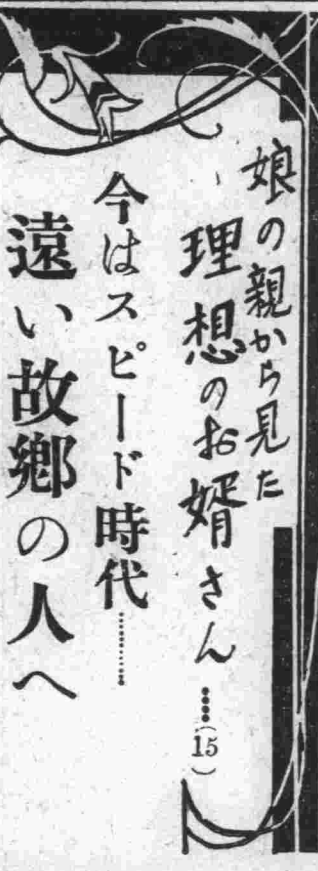 娘の親から見た
理想のお婿さん……(15)
今はスピード時代………
遠い故鄕の人へ